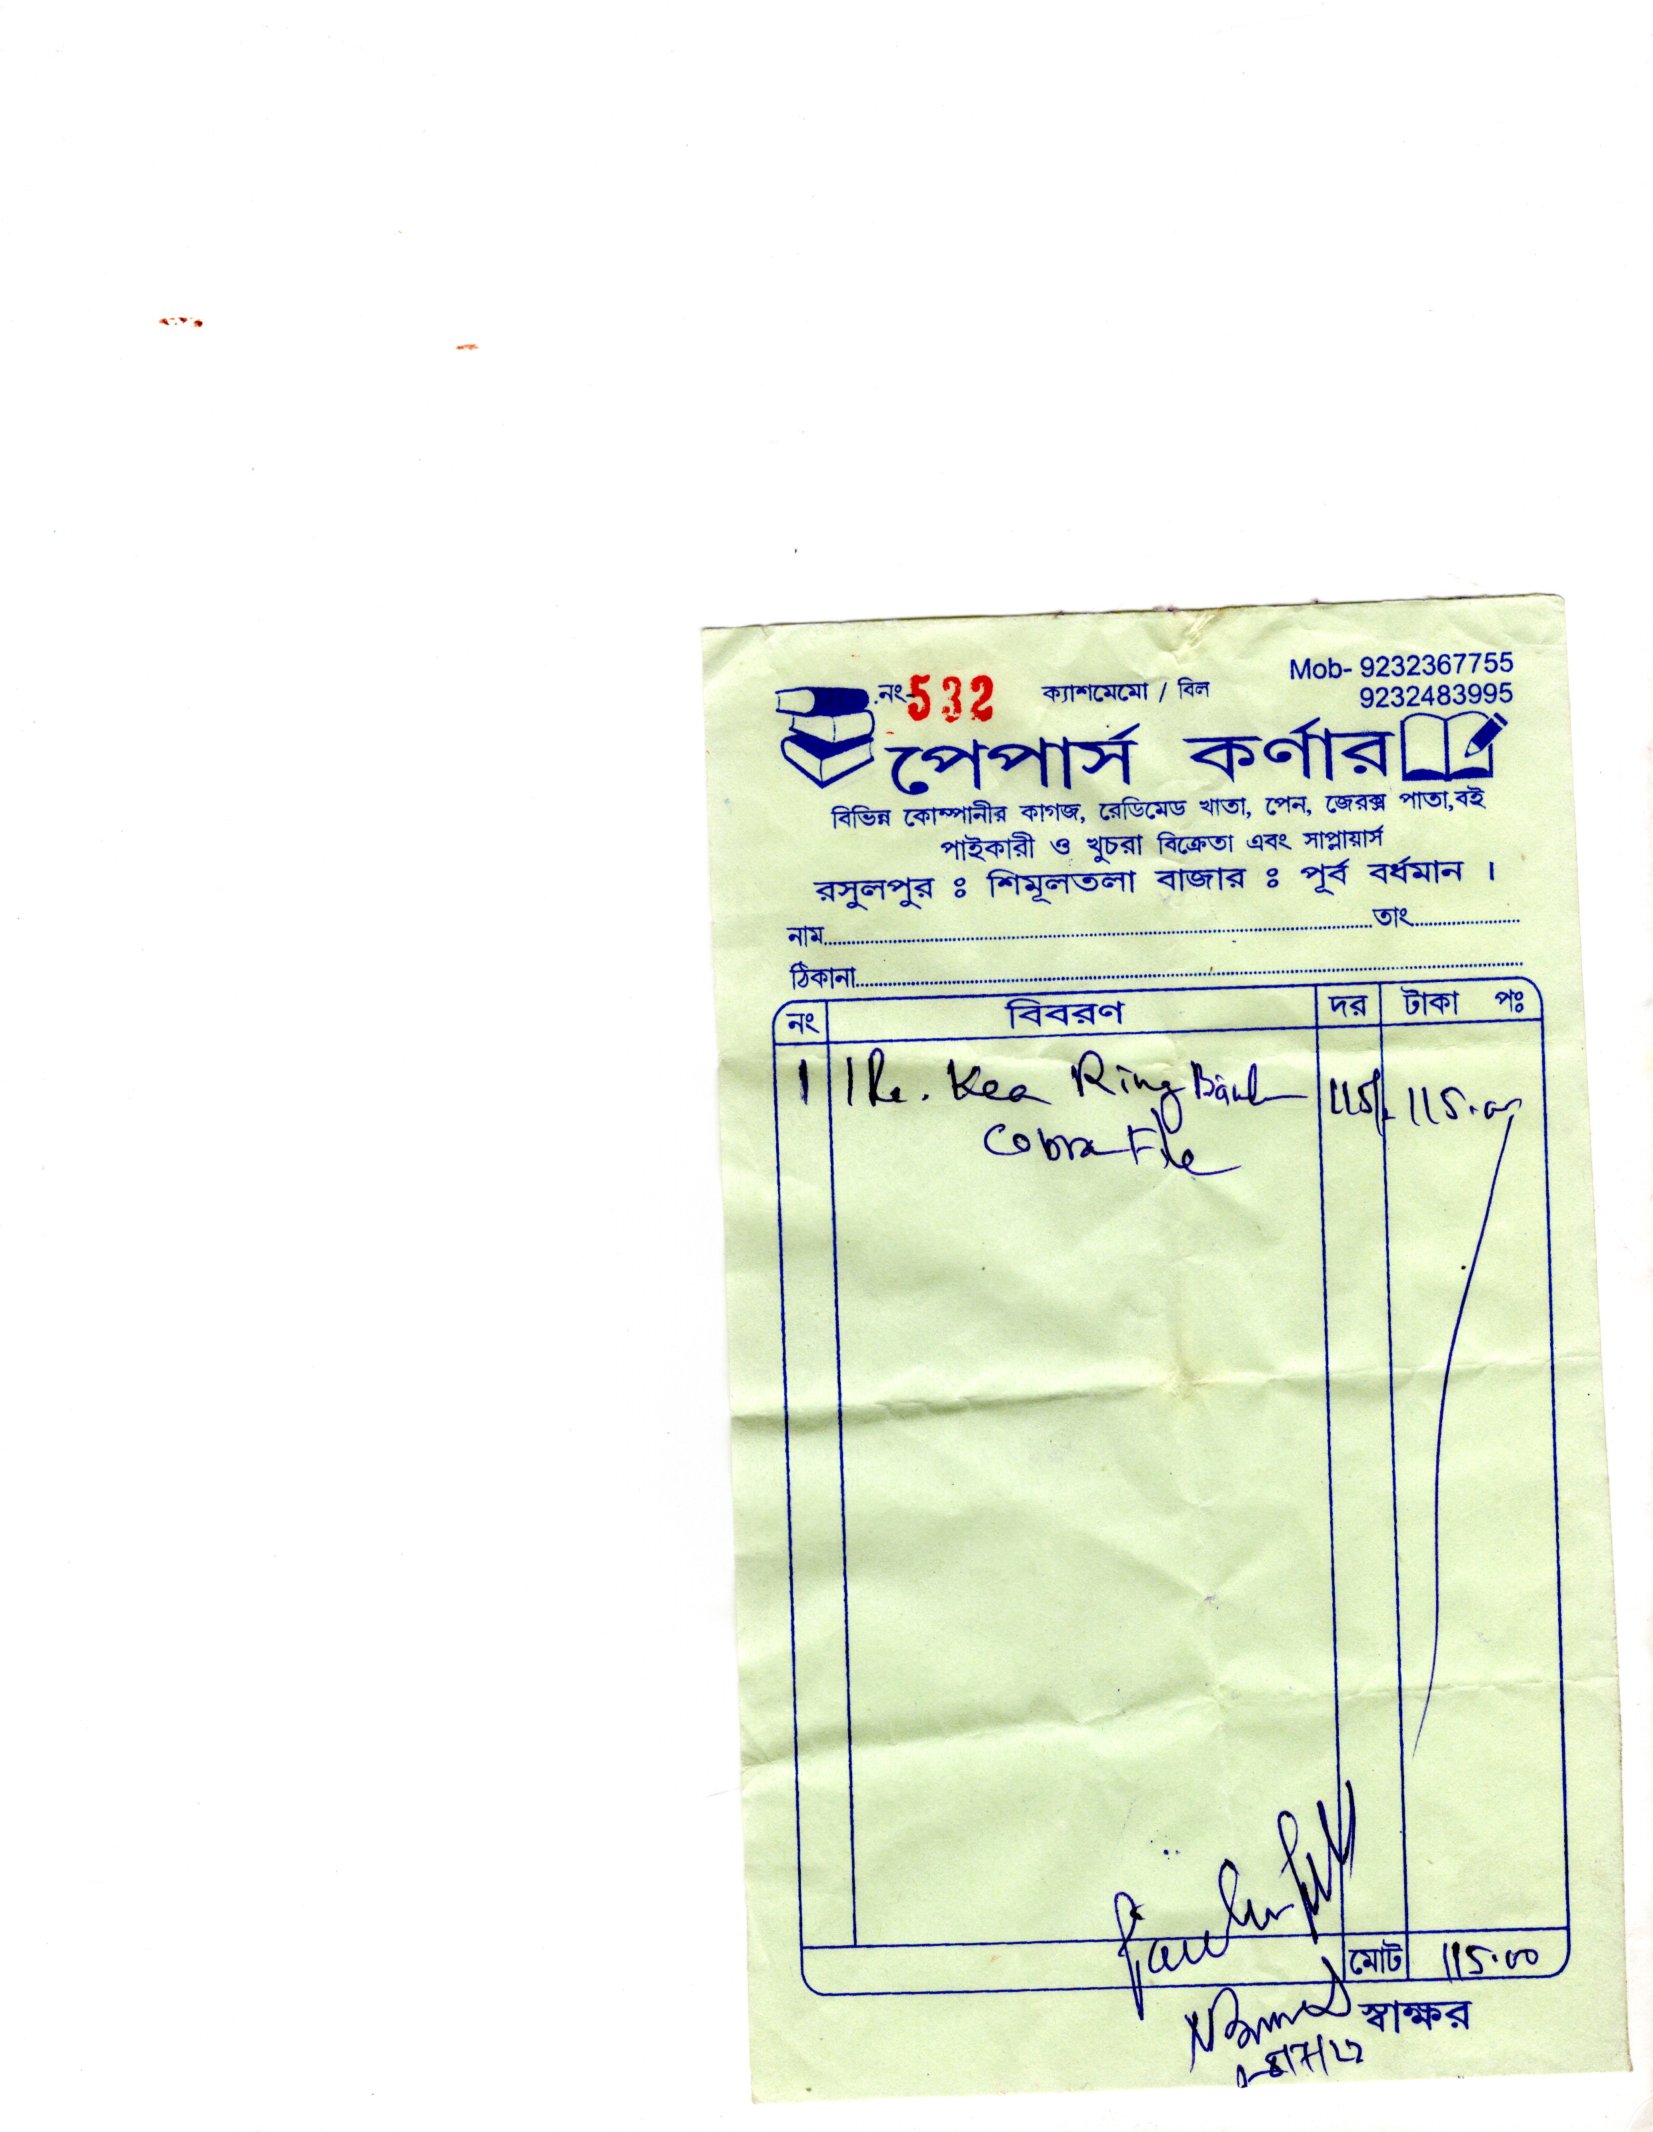 নং-532 ক্যাশমেমো / বিল Mob- 9232367755
9232483995
পেপার্স কর্ণার
বিভিন্ন কোম্পানীর কাগজ, রেডিমেড খাতা, পেন, জেরক্স পাতা,বই
পাইকারী ও খুচরা বিক্রেতা এবং সাপ্লায়ার্স
রসুলপুর ঃ শিমূলতলা বাজার ঃ পূর্ব বর্ধমান ।
নাম তাং
ঠিকানা
নং বিবরণ দর টাকা পঃ
1 Ring 115/- 115.00
Cobra File
মোট 115.00
স্বাক্ষর